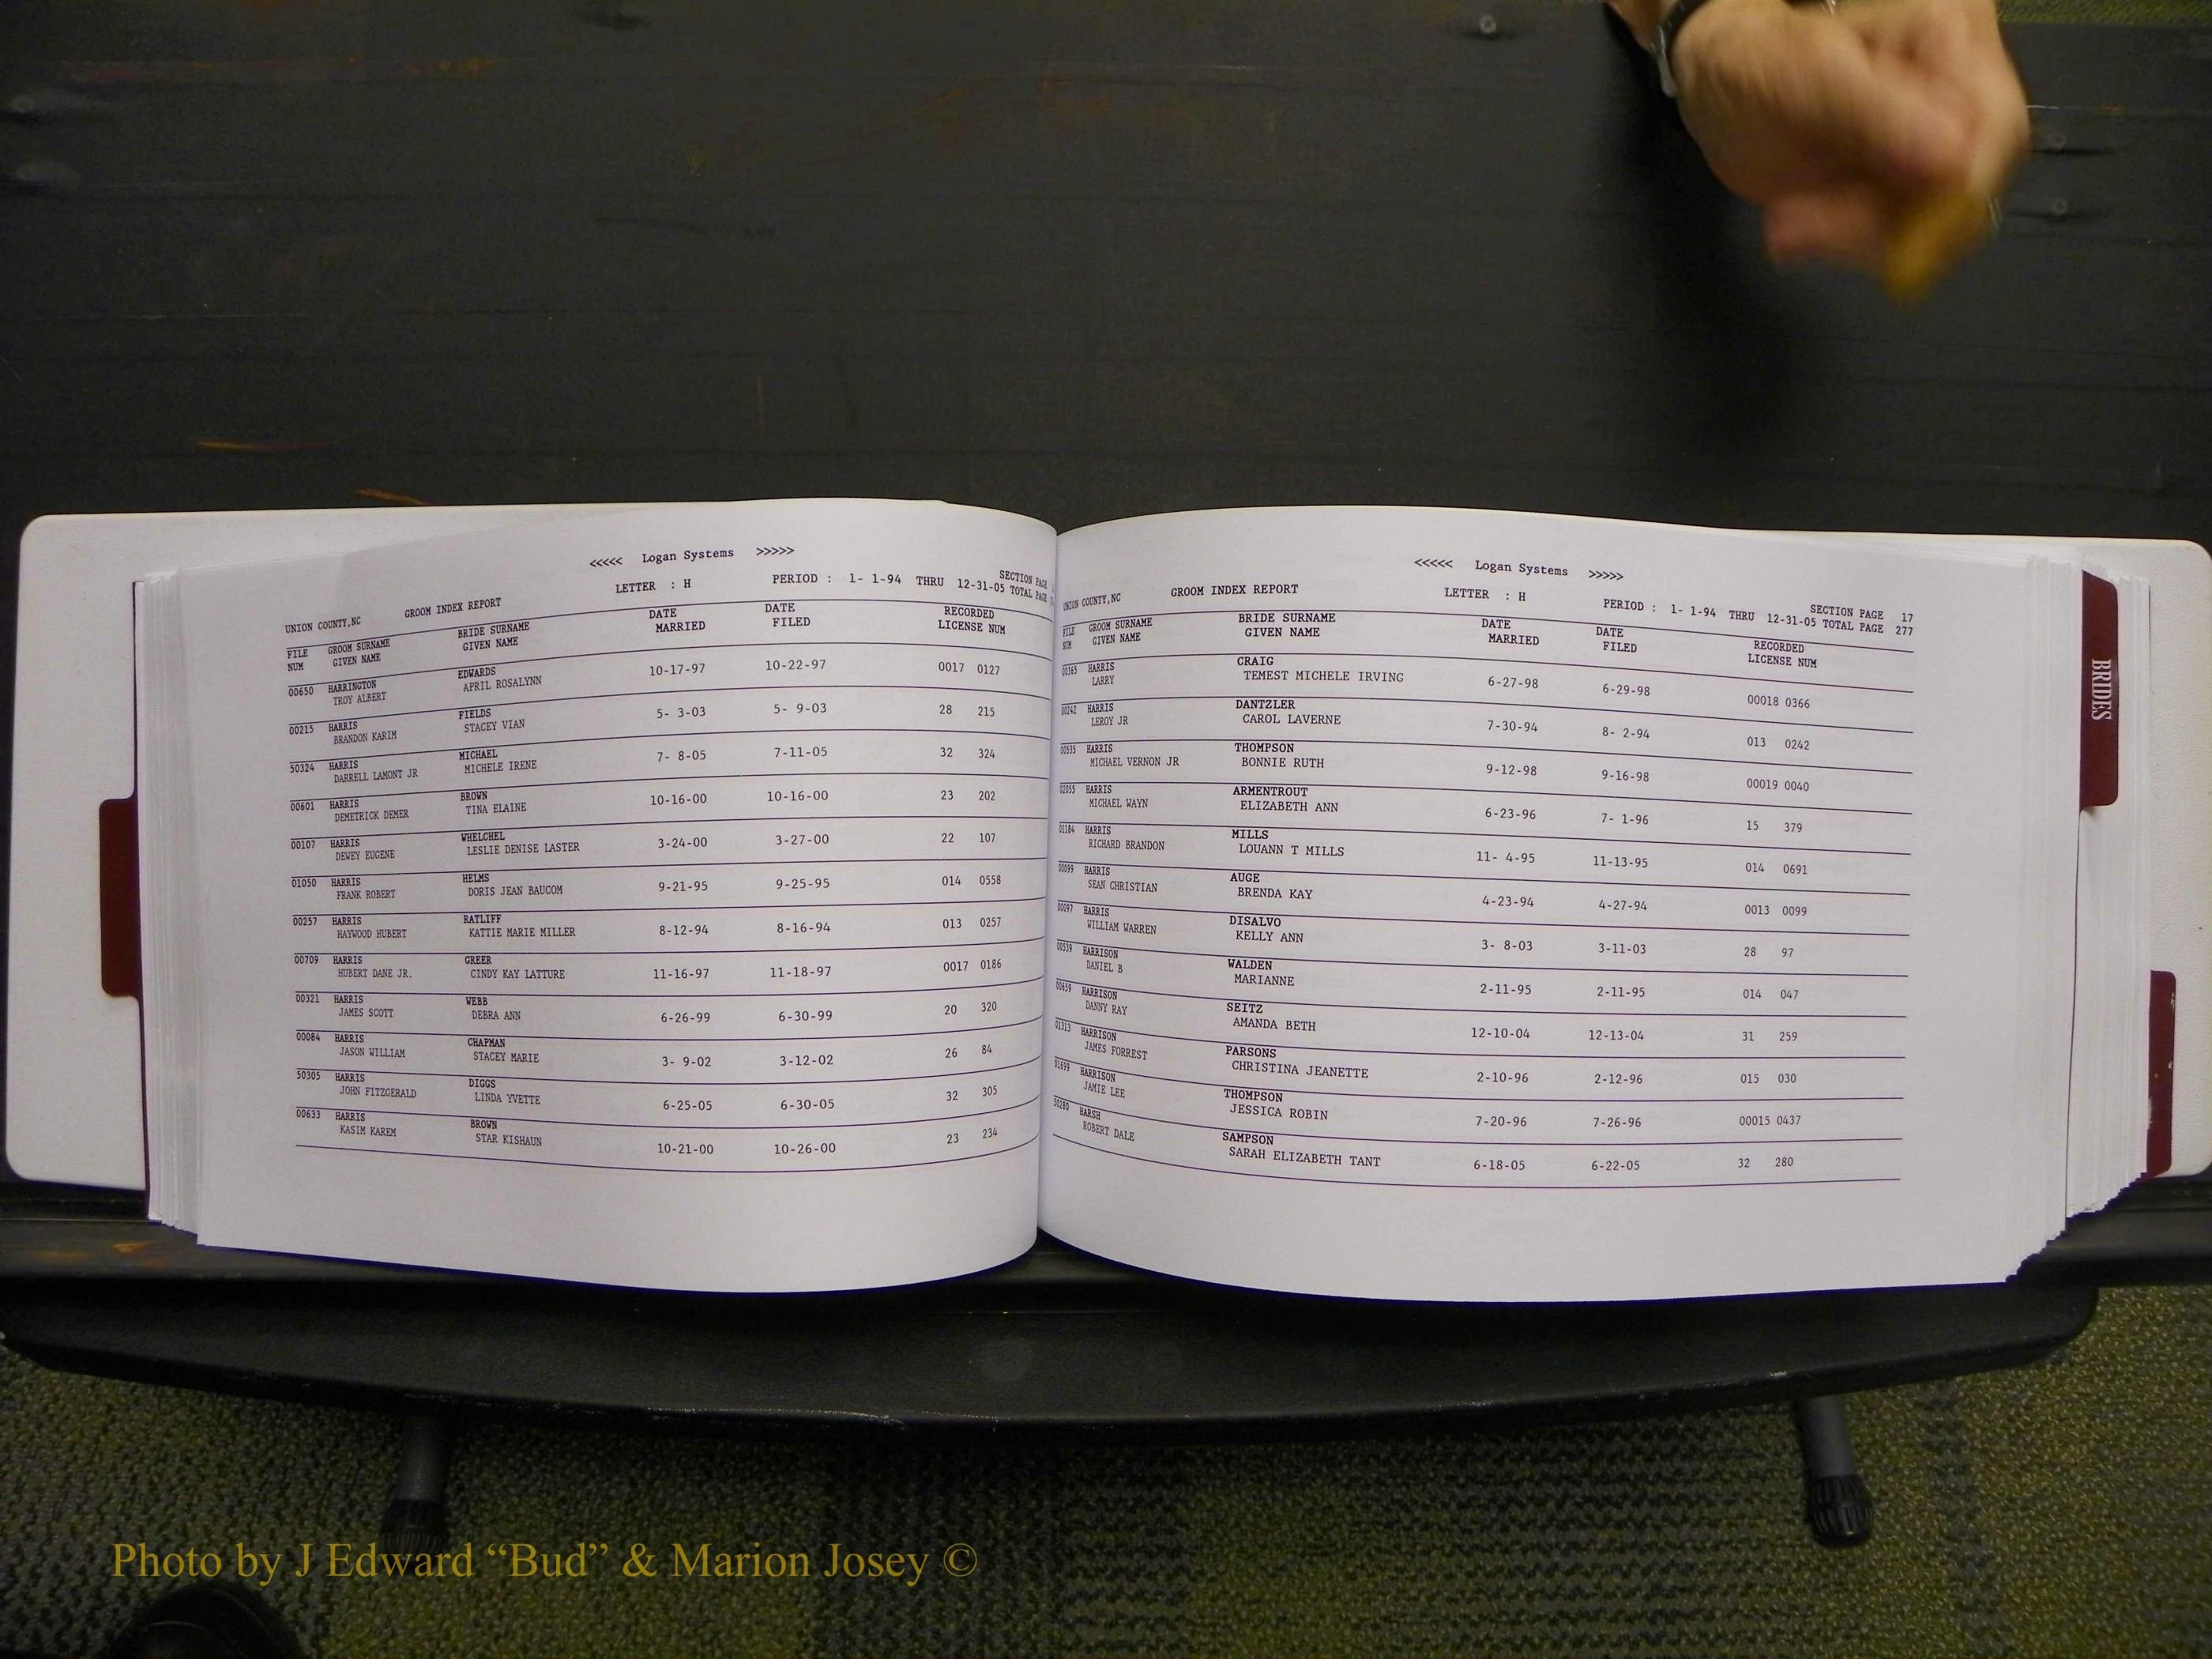 <<<<< Logan Systems >>>>>
UNION COUNTY,NC GROOM INDEX REPORT LETTER : H PERIOD : 1- 1-94 THRU 12-31-05 SECTION PAGE
TOTAL PAGE
FILE GROOM SURNAME BRIDE SURNAME DATE DATE RECORDED
NUM GIVEN NAME GIVEN NAME MARRIED FILED LICENSE NUM
00650 HARRINGTON EDWARDS 10-17-97 10-22-97 0017 0127
TROY ALBERT APRIL ROSALYNN
00215 HARRIS FIELDS 5- 3-03 5- 9-03 28 215
BRANDON KARIM STACEY VIAN
50324 HARRIS MICHAEL 7- 8-05 7-11-05 32 324
DARRELL LAMONT JR MICHELE IRENE
00601 HARRIS BROWN 10-16-00 10-16-00 23 202
DEMETRICK DEMER TINA ELAINE
00107 HARRIS WHELCHEL 3-24-00 3-27-00 22 107
DEWEY EUGENE LESLIE DENISE LASTER
01050 HARRIS HELMS 9-21-95 9-25-95 014 0558
FRANK ROBERT DORIS JEAN BAUCOM
00257 HARRIS RATLIFF 8-12-94 8-16-94 013 0257
HAYWOOD HUBERT KATTIE MARIE MILLER
00709 HARRIS GREER 11-16-97 11-18-97 0017 0186
HUBERT DANE JR. CINDY KAY LATTURE
00321 HARRIS WEBB 6-26-99 6-30-99 20 320
JAMES SCOTT DEBRA ANN
00084 HARRIS CHAPMAN 3- 9-02 3-12-02 26 84
JASON WILLIAM STACEY MARIE
50305 HARRIS DIGGS 6-25-05 6-30-05 32 305
JOHN FITZGERALD LINDA YVETTE
00633 HARRIS BROWN 10-21-00 10-26-00 23 234
KASIM KAREM STAR KISHAUN
<<<<< Logan Systems >>>>>
UNION COUNTY,NC GROOM INDEX REPORT LETTER : H PERIOD : 1- 1-94 THRU 12-31-05 SECTION PAGE 17
TOTAL PAGE 277
FILE GROOM SURNAME BRIDE SURNAME DATE DATE RECORDED
NUM GIVEN NAME GIVEN NAME MARRIED FILED LICENSE NUM
00365 HARRIS CRAIG 6-27-98 6-29-98 00018 0366
LARRY TEMEST MICHELE IRVING
00242 HARRIS DANTZLER 7-30-94 8- 2-94 013 0242
LEROY JR CAROL LAVERNE
00535 HARRIS THOMPSON 9-12-98 9-16-98 00019 0040
MICHAEL VERNON JR BONNIE RUTH
02055 HARRIS ARMENTROUT 6-23-96 7- 1-96 15 379
MICHAEL WAYN ELIZABETH ANN
01184 HARRIS MILLS 11- 4-95 11-13-95 014 0691
RICHARD BRANDON LOUANN T MILLS
00099 HARRIS AUGE 4-23-94 4-27-94 0013 0099
SEAN CHRISTIAN BRENDA KAY
00097 HARRIS DISALVO 3- 8-03 3-11-03 28 97
WILLIAM WARREN KELLY ANN
00539 HARRISON WALDEN 2-11-95 2-11-95 014 047
DANIEL B MARIANNE
00659 HARRISON SEITZ 12-10-04 12-13-04 31 259
DANNY RAY AMANDA BETH
01313 HARRISON PARSONS 2-10-96 2-12-96 015 030
JAMES FORREST CHRISTINA JEANETTE
01699 HARRISON THOMPSON 7-20-96 7-26-96 00015 0437
JAMIE LEE JESSICA ROBIN
50280 HARSH SAMPSON 6-18-05 6-22-05 32 280
ROBERT DALE SARAH ELIZABETH TANT
BRIDES
Photo by J Edward “Bud” & Marion Josey ©